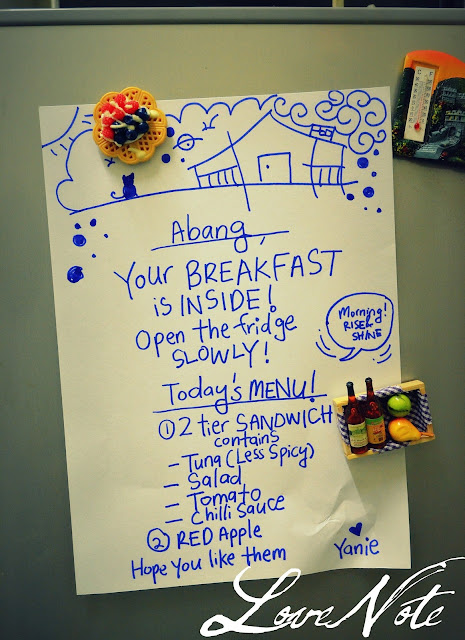 Abang,
Your BREAKFAST
is INSIDE!
Open the fridge
SLOWLY!
Morning!
RISE &
SHINE
Today's MENU!
① 2 tier SANDWICH
contains
- Tuna (Less Spicy)
- Salad
- Tomato
- Chilli Sauce
② RED Apple
Hope You like them
Yanie
Love Note